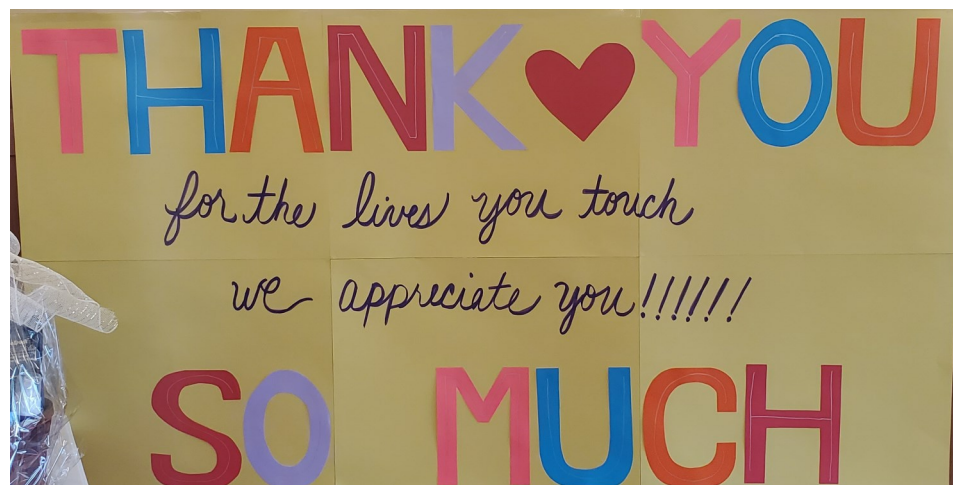 THANK YOU
for the lives you touch
we appreciate you!!!!!!
SO MUCH